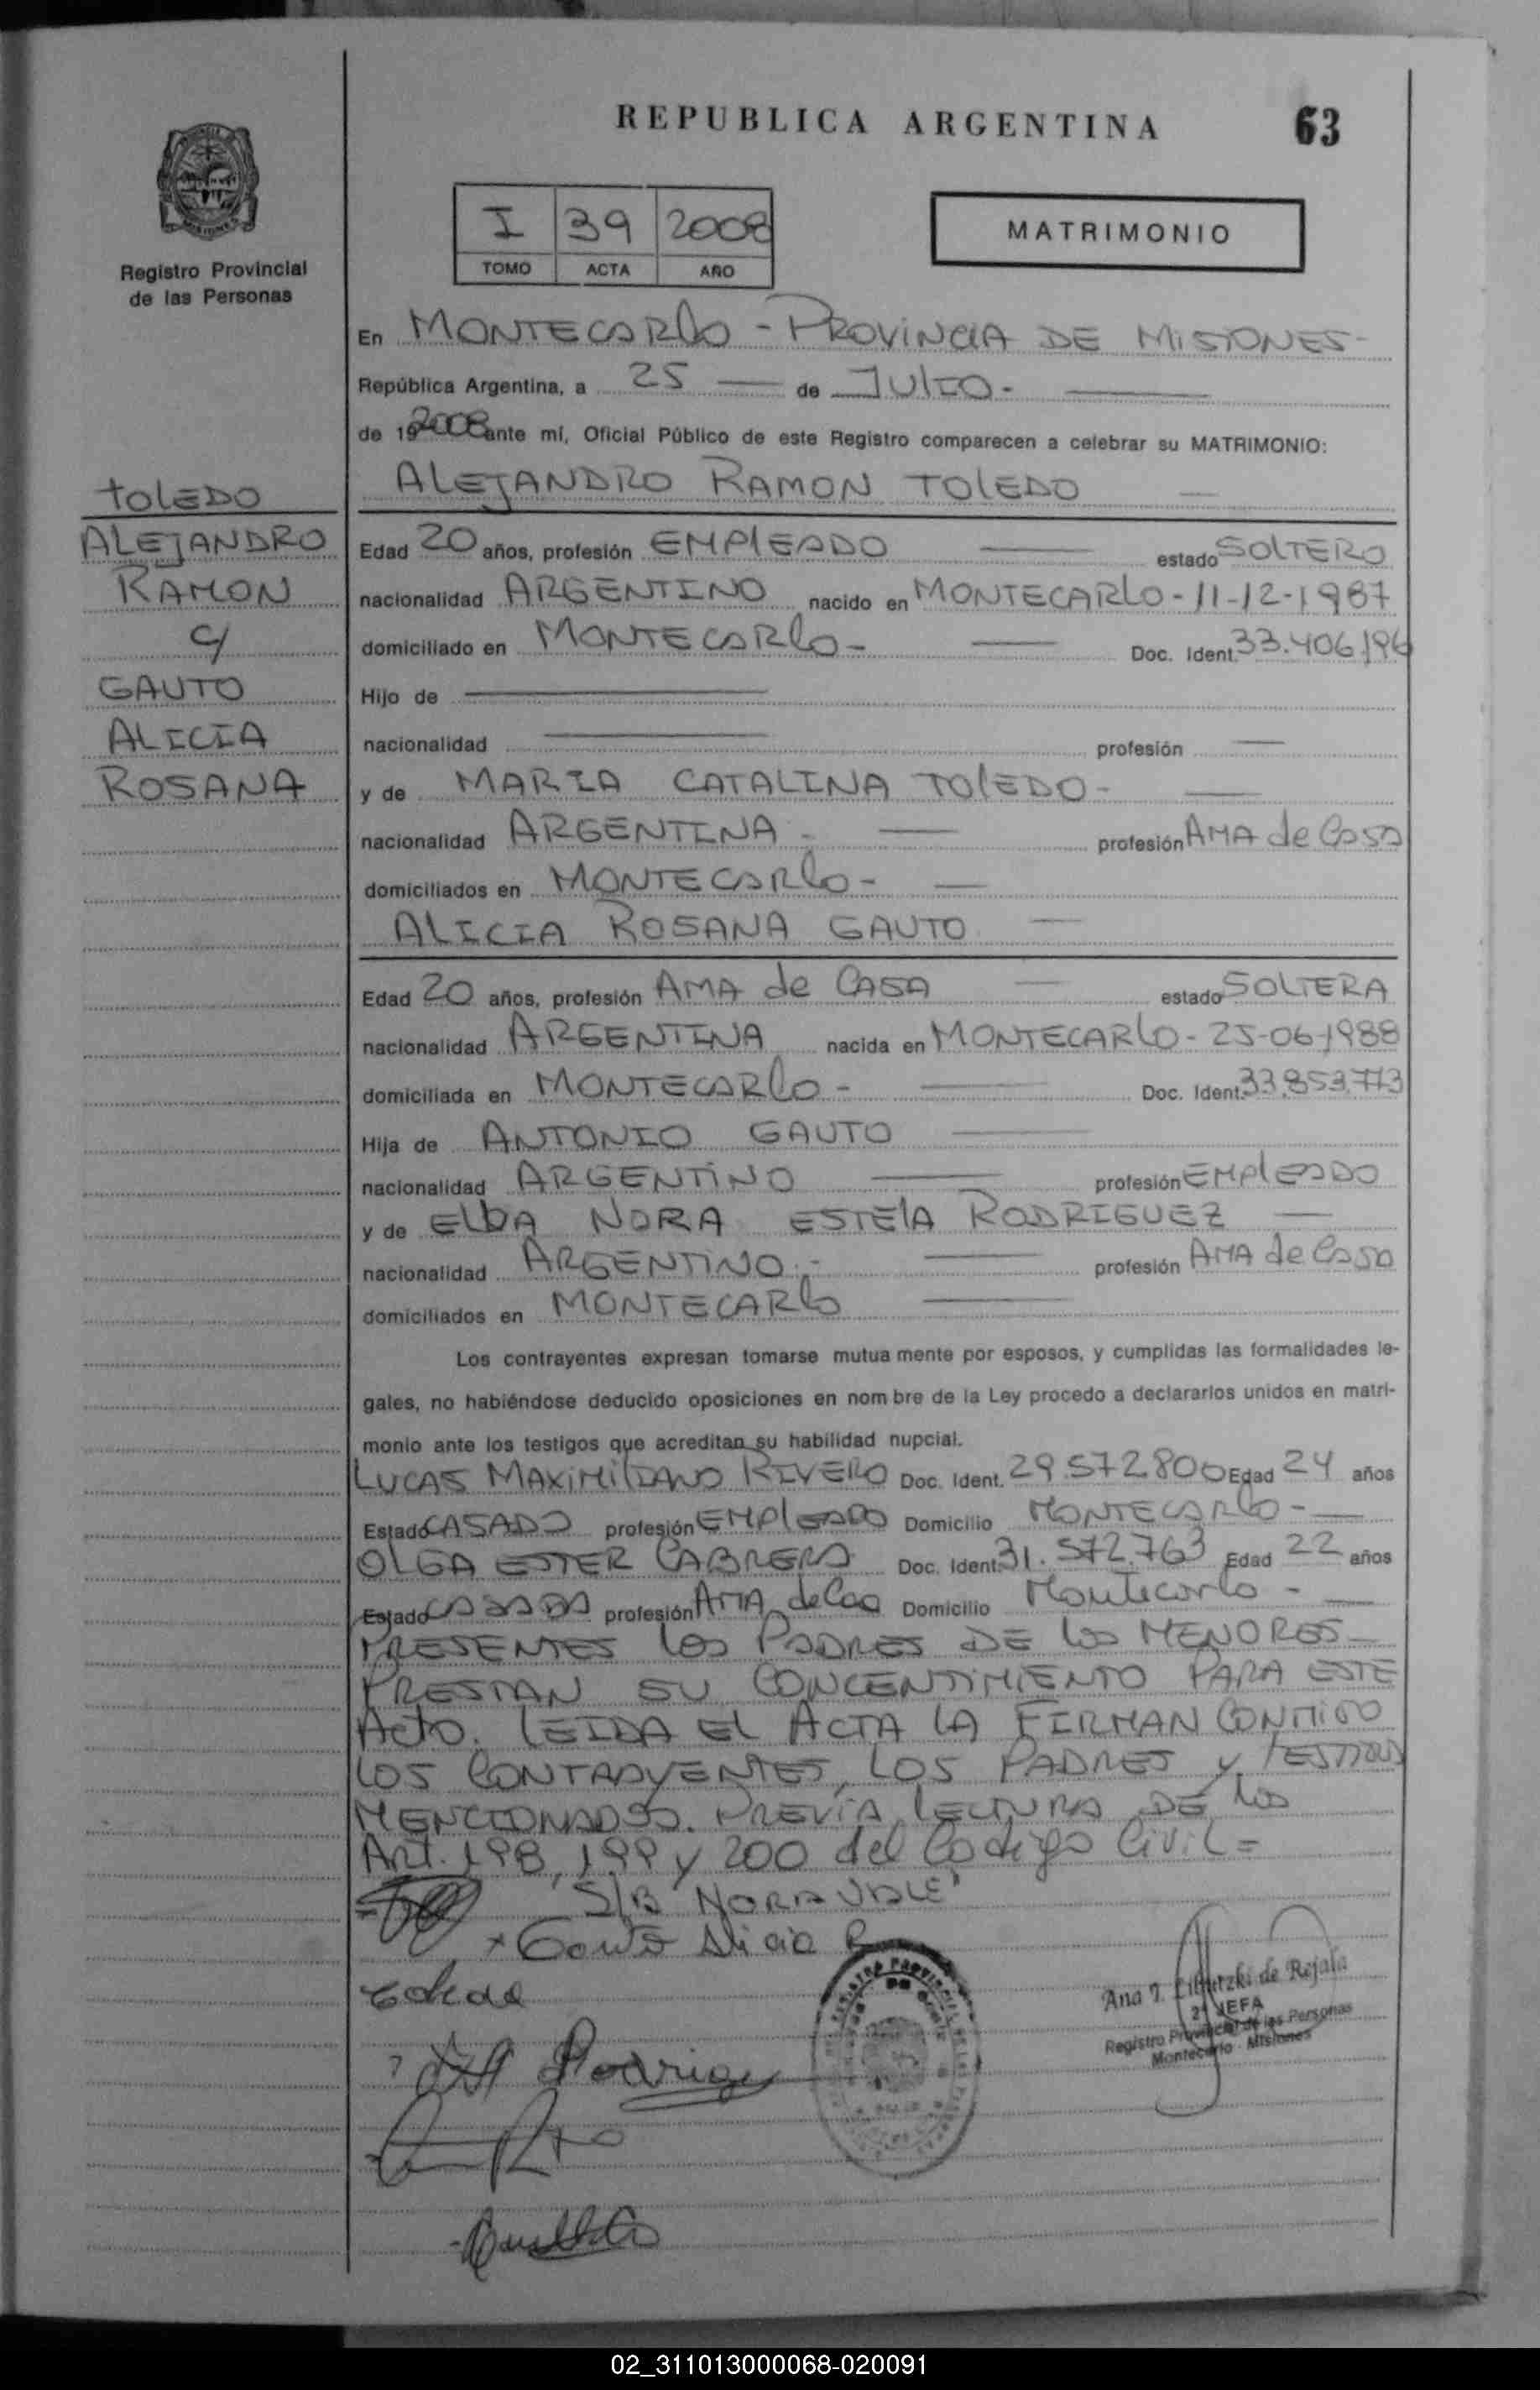 REPUBLICA ARGENTINA 63
Registro Provincial
de las Personas
I 39 2008
TOMO ACTA AÑO
MATRIMONIO
TOLEDO
ALEJANDRO
RAMON
c/
GAUTO
ALICIA
ROSANA
En MONTECARLO - PROVINCIA DE MISIONES -
República Argentina, a 25 — de JULIO - —
de 19 2008 ante mí, Oficial Público de este Registro comparecen a celebrar su MATRIMONIO:
ALEJANDRO RAMON TOLEDO —
Edad 20 años, profesión EMPLEADO — estado SOLTERO
nacionalidad ARGENTINO nacido en MONTECARLO - 11-12-1987
domiciliado en MONTECARLO - — Doc. Ident. 33.406.196
Hijo de —
nacionalidad — profesión —
y de MARIA CATALINA TOLEDO - —
nacionalidad ARGENTINA - — profesión AMA de CASA
domiciliados en MONTECARLO - —
ALICIA ROSANA GAUTO —
Edad 20 años, profesión AMA de CASA — estado SOLTERA
nacionalidad ARGENTINA nacida en MONTECARLO - 25-06-1988
domiciliada en MONTECARLO - — Doc. Ident. 33.853.773
Hija de ANTONIO GAUTO —
nacionalidad ARGENTINO — profesión EMPLEADO
y de ELBA NORA ESTELA RODRIGUEZ —
nacionalidad ARGENTINO.- — profesión AMA de CASA
domiciliados en MONTECARLO —
Los contrayentes expresan tomarse mutua mente por esposos, y cumplidas las formalidades le-
gales, no habiéndose deducido oposiciones en nom bre de la Ley procedo a declararlos unidos en matri-
monio ante los testigos que acreditan su habilidad nupcial.
LUCAS MAXIMILIANO RIVERO Doc. Ident. 29.572.800 Edad 24 años
Estado CASADO profesión EMPLEADO Domicilio MONTECARLO - —
OLGA ESTER CABRERA Doc. Ident. 31.572.763 Edad 22 años
Estado CASADA profesión AMA de Casa Domicilio Montecarlo - —
PRESENTES LOS PADRES DE LOS MENORES -
PRESTAN SU CONCENTIMIENTO PARA ESTE
ACTO. LEIDA EL ACTA LA FIRMAN CONMIGO
LOS CONTRAYENTES, LOS PADRES y TESTIGOS
MENCIONADOS. PREVIA LECTURA DE LOS
ART. 198, 199 y 200 del Codigo Civil =
S/B "NORA VALE"
Gauto Alicia R
Toledo
Rodrigue
Ana I. de Rejala
2ª JEFA
Registro Provincial de las Personas
Montecarlo - Misiones
02_311013000068-020091